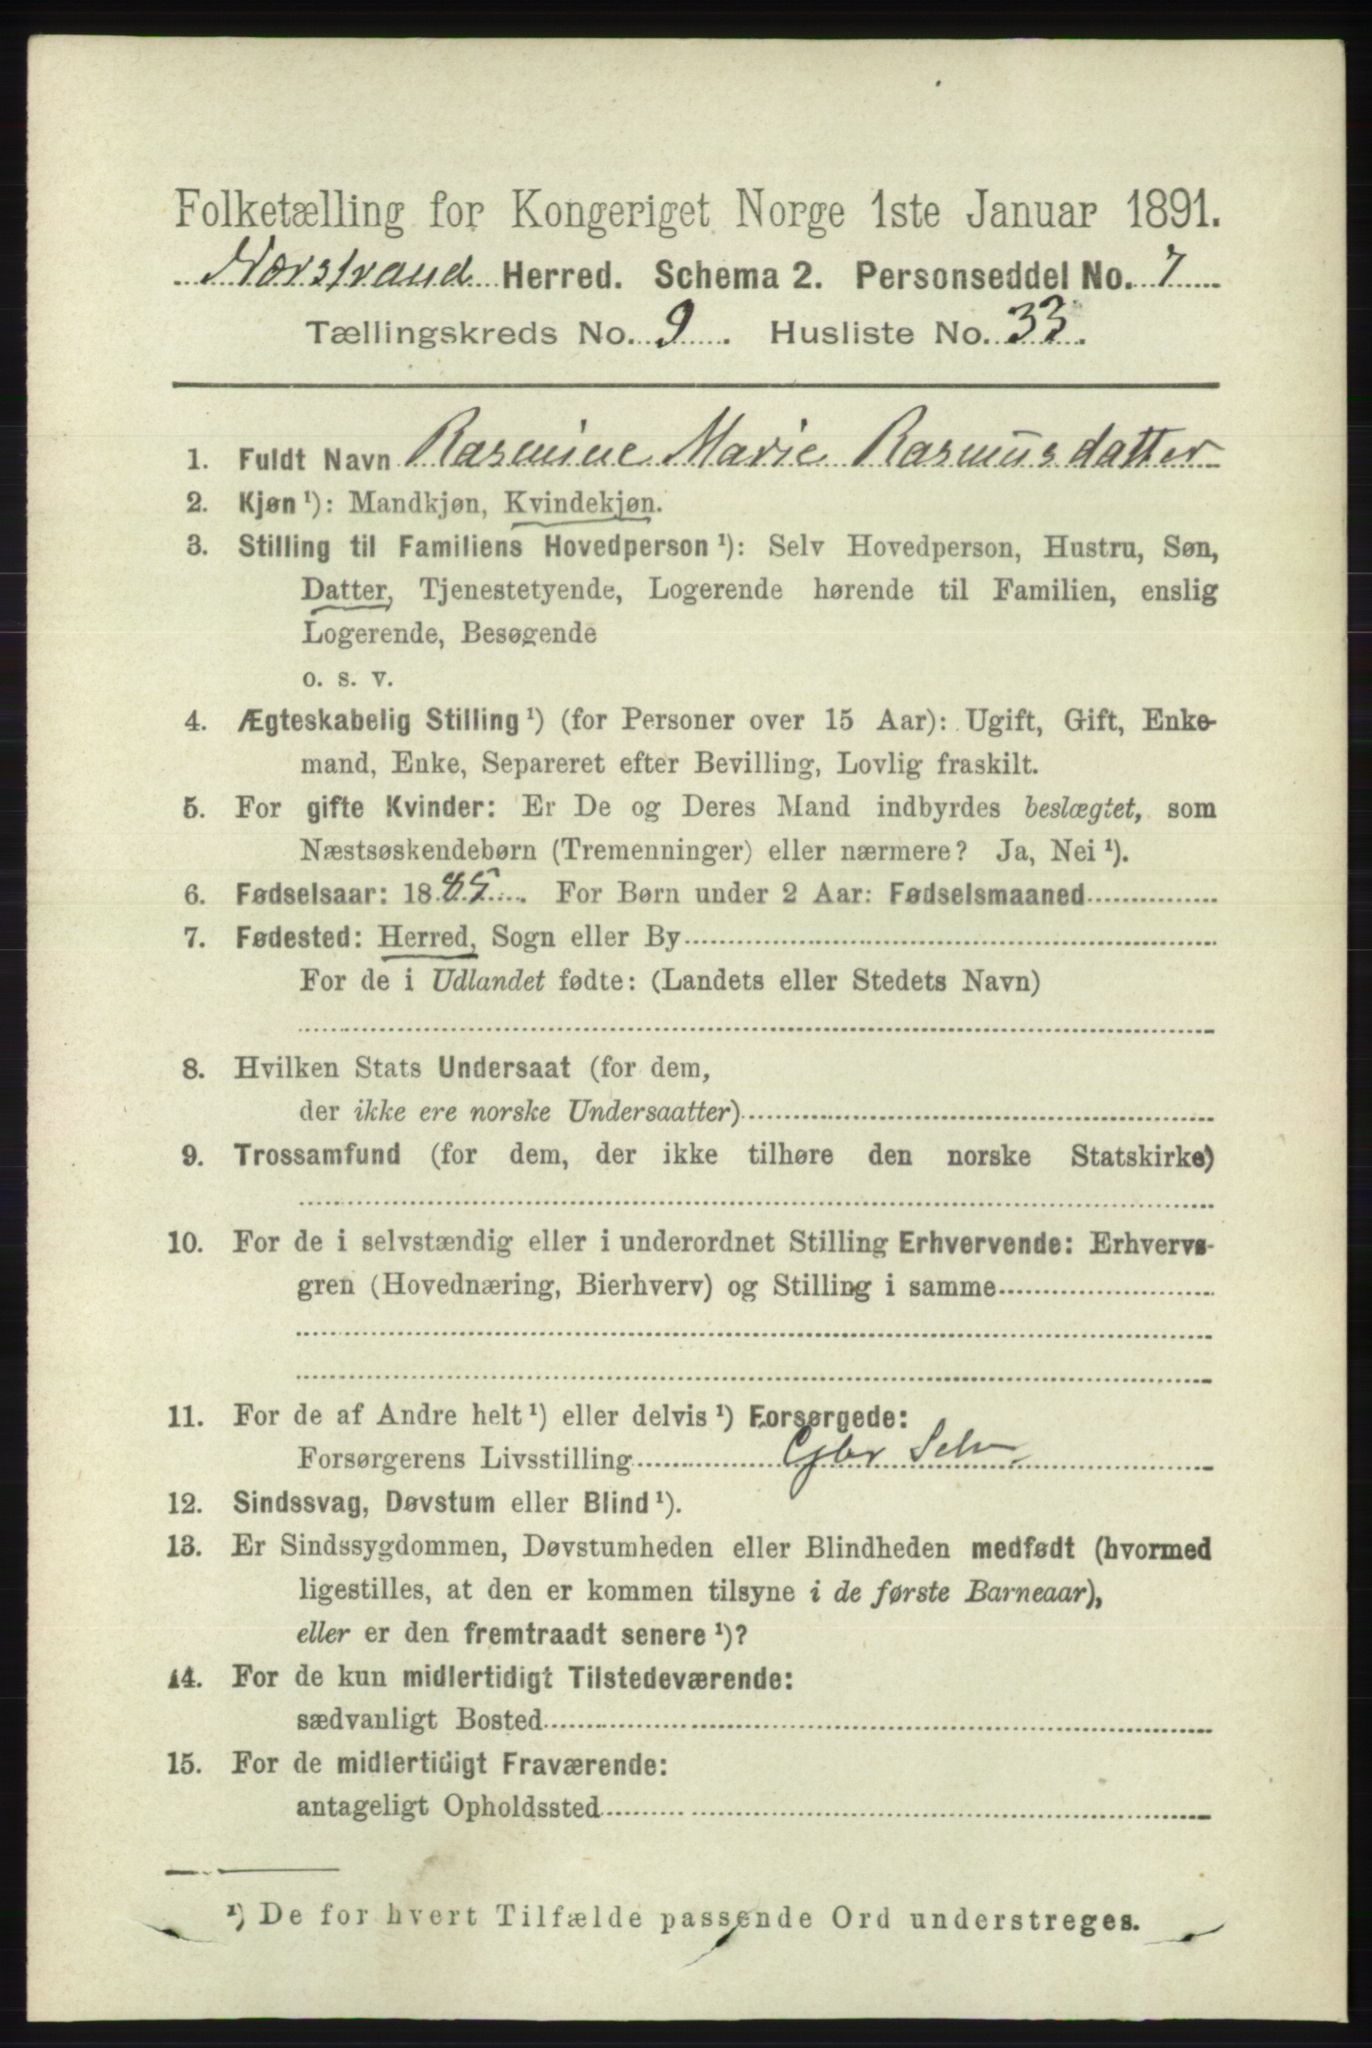 Folketælling for Kongeriget Norge 1ste Januar 1891.
Nærstrand Herred. Schema 2. Personseddel No. 7
Tællingskreds No. 9. Husliste No. 33.
1. Fuldt Navn Rasmine Marie Rasmusdatter
2. Kjøn ¹): Mandkjøn, Kvindekjøn.
3. Stilling til Familiens Hovedperson ¹): Selv Hovedperson, Hustru, Søn,
Datter, Tjenestetyende, Logerende hørende til Familien, enslig
Logerende, Besøgende
o. s. v.
4. Ægteskabelig Stilling ¹) (for Personer over 15 Aar): Ugift, Gift, Enke-
mand, Enke, Separeret efter Bevilling, Lovlig fraskilt.
5. For gifte Kvinder: Er De og Deres Mand indbyrdes beslægtet, som
Næstsøskendebørn (Tremenninger) eller nærmere? Ja, Nei ¹).
6. Fødselsaar: 1885. For Børn under 2 Aar: Fødselsmaaned
7. Fødested: Herred, Sogn eller By
For de i Udlandet fødte: (Landets eller Stedets Navn)
8. Hvilken Stats Undersaat (for dem,
der ikke ere norske Undersaatter)
9. Trossamfund (for dem, der ikke tilhøre den norske Statskirke)
10. For de i selvstændig eller i underordnet Stilling Erhvervende: Erhvervs-
gren (Hovednæring, Bierhverv) og Stilling i samme
11. For de af Andre helt ¹) eller delvis ¹) Forsørgede:
Forsørgerens Livsstilling Gbr Selv
12. Sindssvag, Døvstum eller Blind ¹).
13. Er Sindssygdommen, Døvstumheden eller Blindheden medfødt (hvormed
ligestilles, at den er kommen tilsyne i de første Barneaar),
eller er den fremtraadt senere ¹)?
14. For de kun midlertidigt Tilstedeværende:
sædvanligt Bosted
15. For de midlertidigt Fraværende:
antageligt Opholdssted
¹) De for hvert Tilfælde passende Ord understreges.